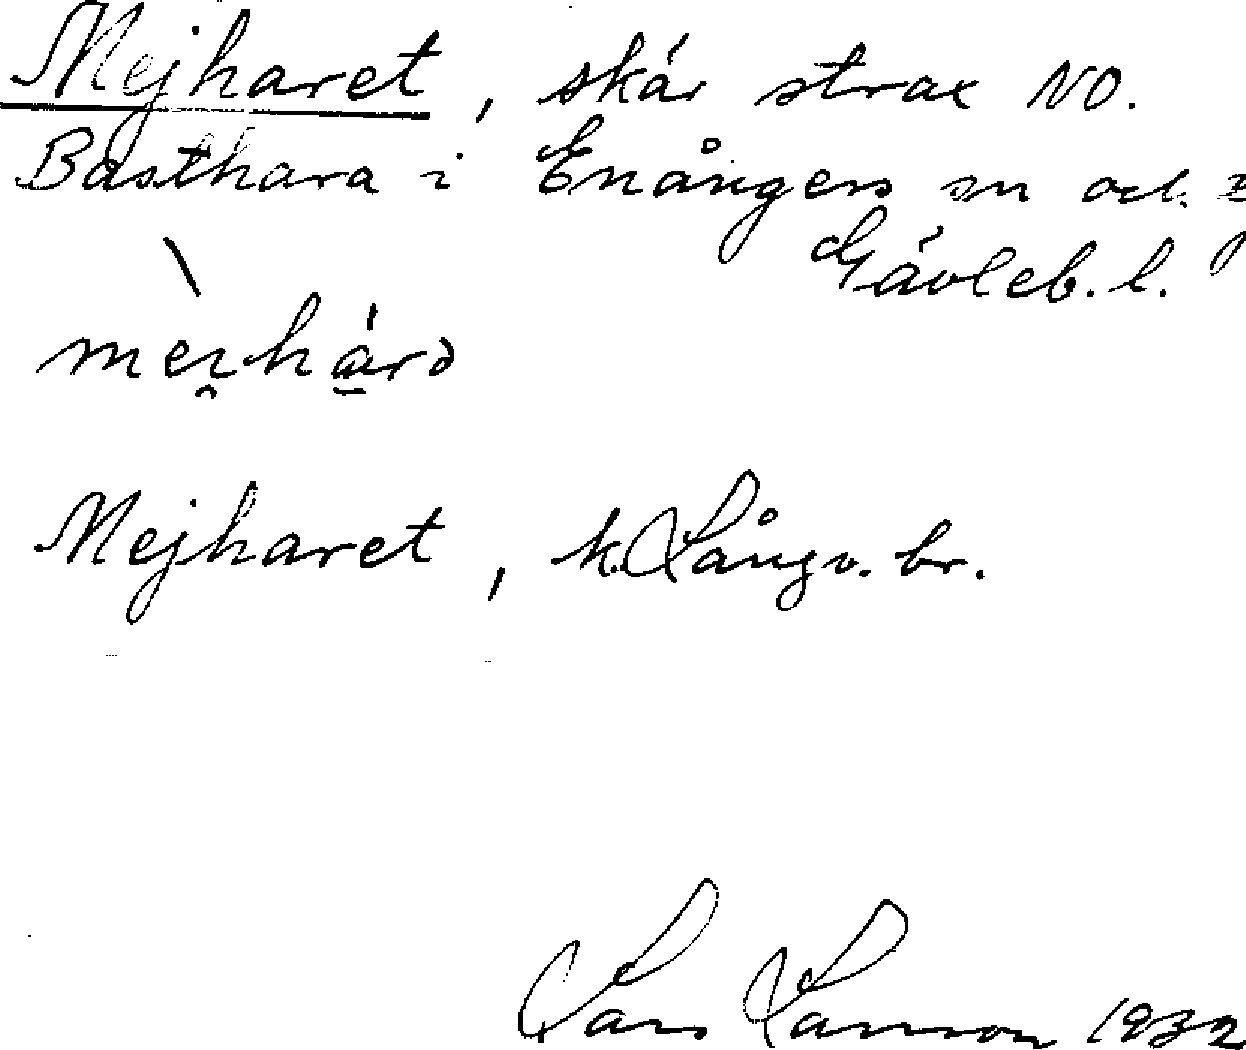 Mejharet, skär strax NO.
Basthara i Enångers sn och
Gävleb. l.
Mejharet, k. Långv. br.
Lars Larsson 1932